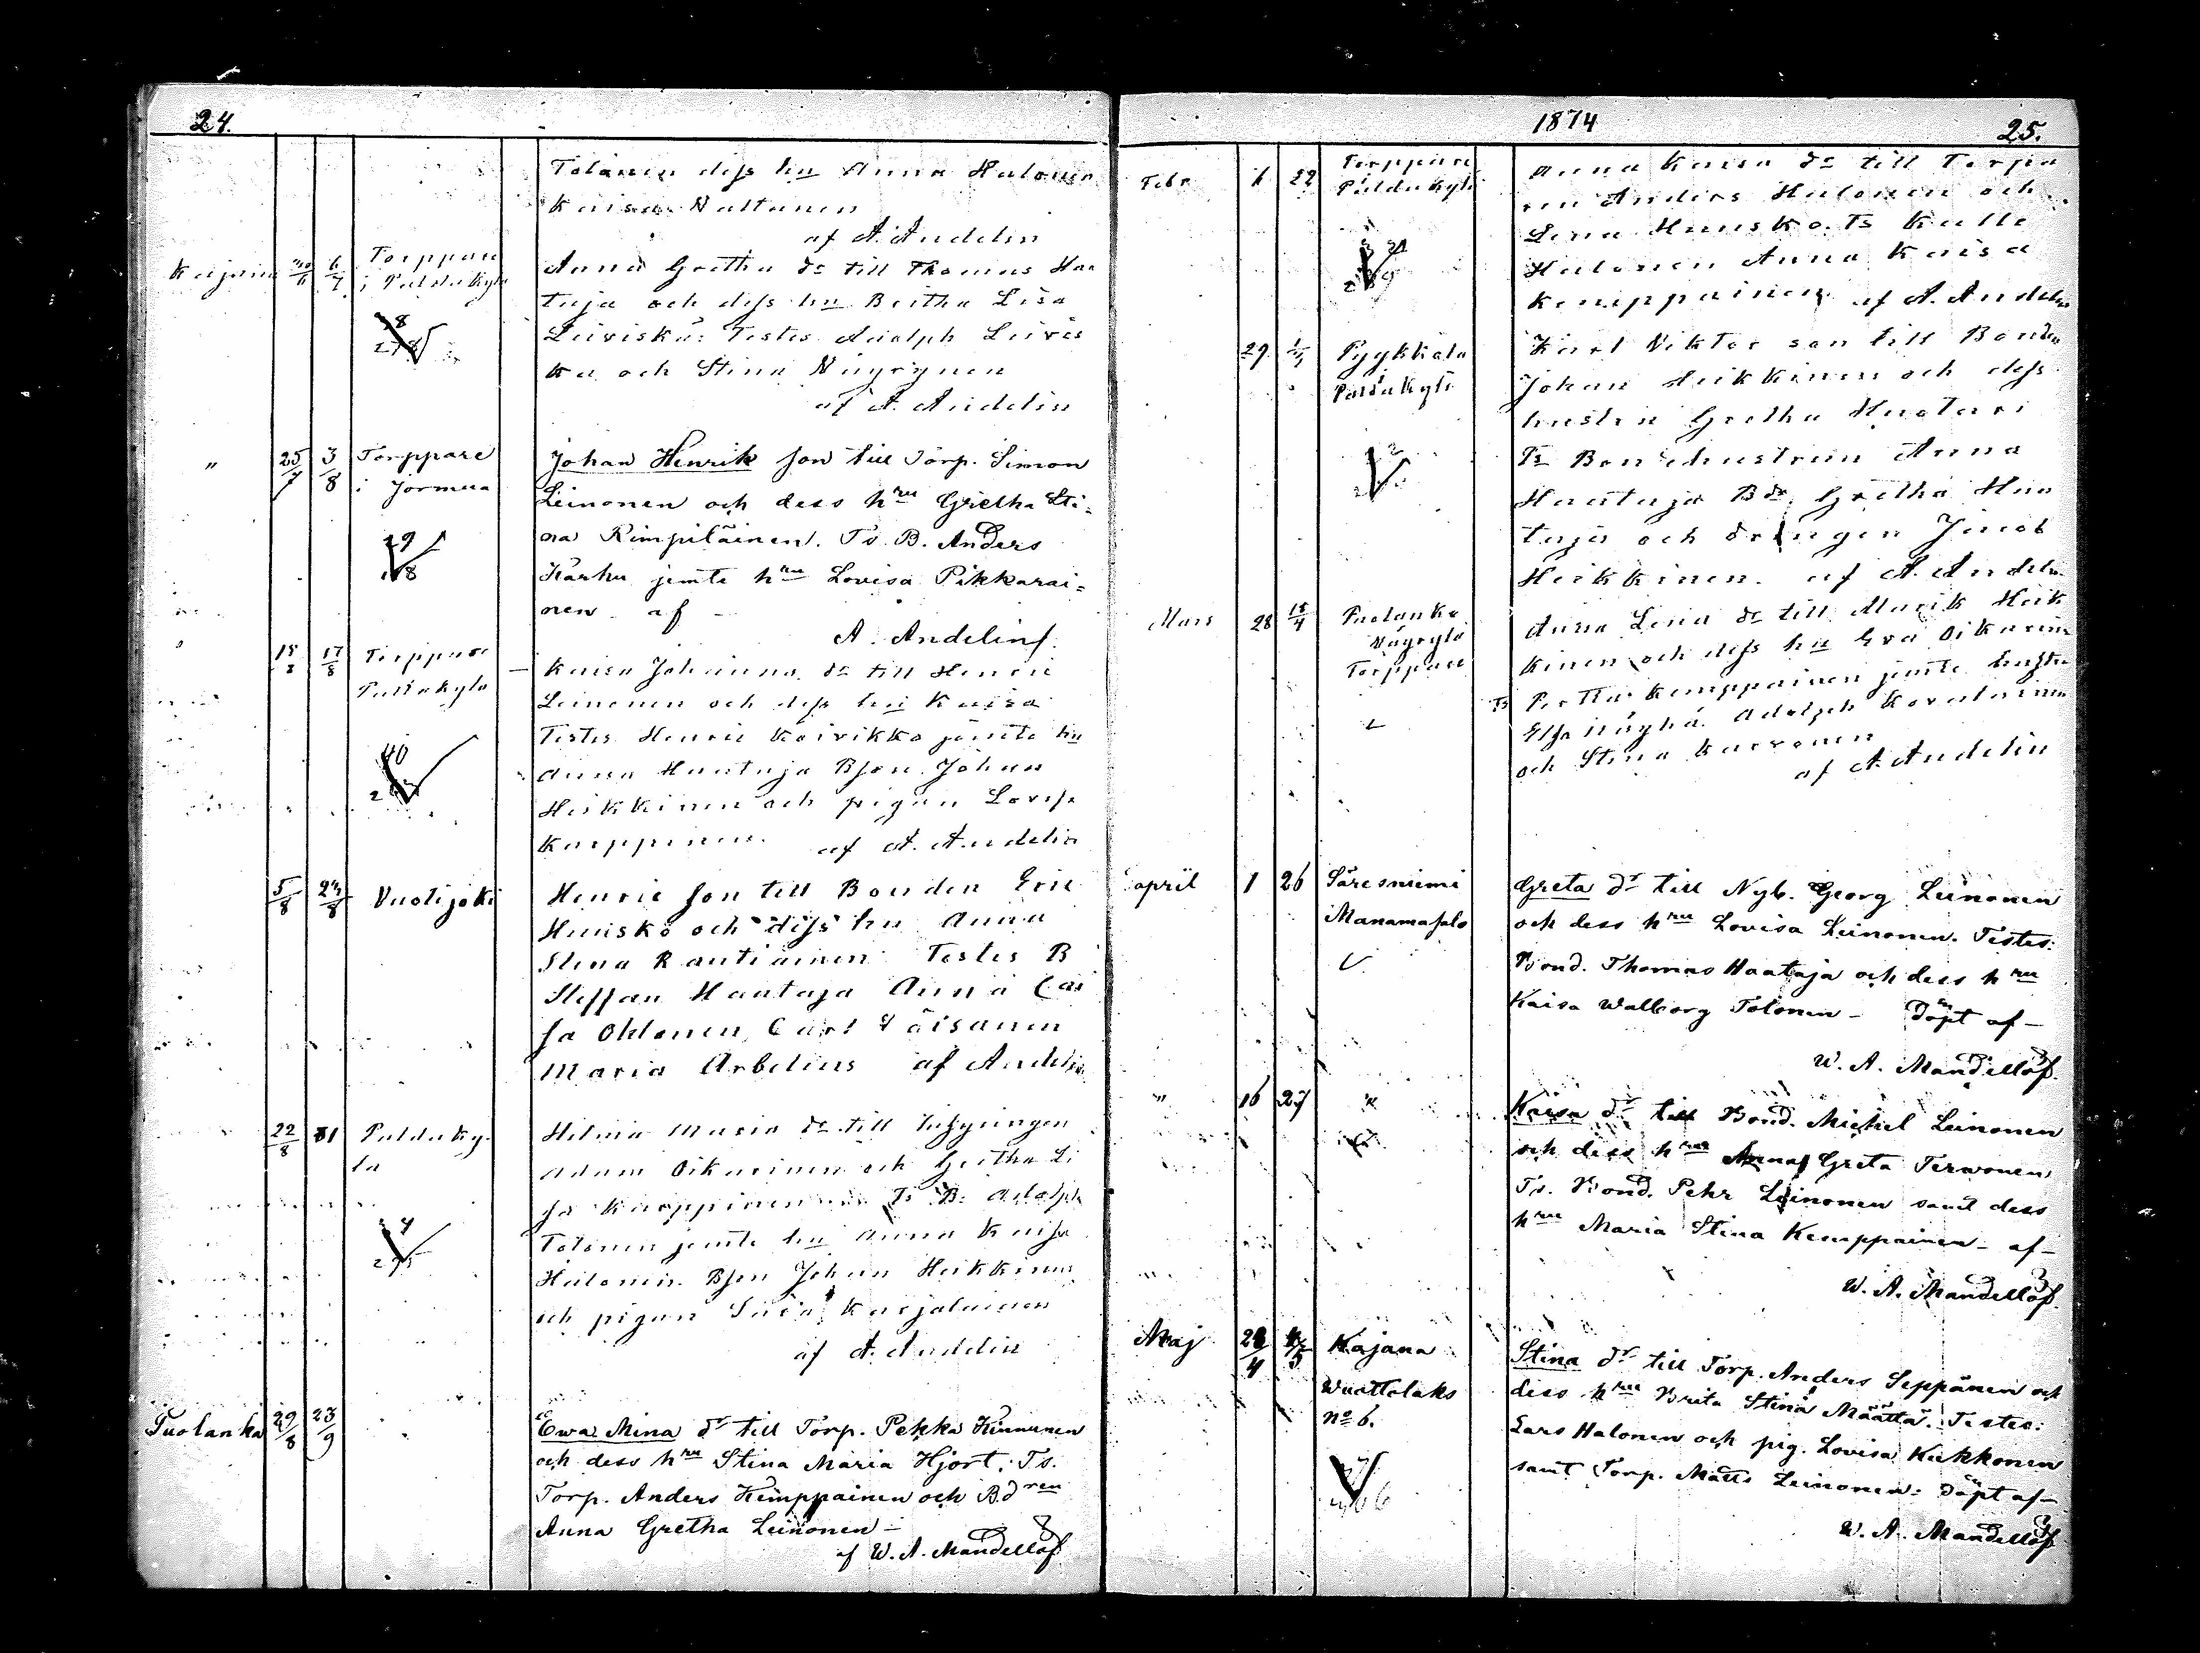 24.
Tolanen dess hu Anna Halonen
Kaisa Vattanen
af A. Andelin
Kajana 30/6 6/7 Torppare
i Paldakylä
Anna Gretha dr till Thomas Haa
taja och dess hu Beitha Lisa
Leiviskä: Testes Adolph Leivis
kä och Stina Väyrynen
af A. Andelin
" 25/7 3/8 Torppare
i Jormua
Johan Henrik son till Torp. Simon
Leinonen och dess hru Gretha Sti-
na Rimpiläinen. Ts. B. Anders
Karhu jemte hru Lovisa Pikkarai-
nen af -
A. Andelin
17/8 Torppare
Paldakylä
Kaisa Johanna dr till Henric
Leinonen och dess hu Kaisa
Testes Henric Koivikko jemte hu
Anna Haataja Bson Johan
Heikkinen och pigan Lovisa
Karppinen. af A. Andelin
5/8 Vuolijoki
Henric son till Bonden Eric
Huusko och dess hu Anna
Stina Rautiainen Testes B
Steffan Haataja Anna Cai
sa Ohtonen Carl Väisänen
Maria Arbelius af Andelin
22/8 31 Paldaky-
lä
Helmia Maria dr till Inhysingen
Adam Oikarinen och Gretha Li
sa Karppinen Ts B. Adolph
Tolonen jemte hu Anna Kaisa
Halonen Bson Johan Heikkinen
och pigan Karjalainen
af A. Andelin
Puolanka 29/8 23/9
Ewa Mina dr till Torp. Pekka Kinnunen
och dess hru Stina Maria Hjort. Ts.
Torp. Anders Kemppainen och B.dren
Anna Gretha Leinonen -
af W. A. Mandellöf
1874 25.
Febr 22 Torppare
Paldakylä
Anna Kaisa dr till Torpa
ren Anders Halonen och
Lena Huusko. Ts Kalle
Halonen Anna Kaisa
Kemppainen af A. Andelin
29 Pyykkölä
Paldakylä
Karl Viktor son till Bonden
Johan Heikkinen och dess
hustru Gretha Huotari
Ts Bondhustrun Anna
Haataja Bdr Gretha Haa
taja och drängen Jacob
Heikkinen. af A. Andelin
Mars 28 15/4 Puolanko
Väyrylä
Torppare
Anna Lena dr till Heik
kinen och dess hu Eva Oikarinen
Ts Kemppainen jemte hustru
Elsa Adolph Kovalainen
och Stina Karvonen
af A. Andelin
april 1 26 Säresniemi
Manamasalo
Greta dr till Nyb. Georg Leinonen
och dess hru Lovisa Leinonen. Testes:
Bond. Thomas Haataja och dess hru
Kaisa Walborg Tolonen - döpt af -
W. A. Mandellöf.
" 16 27 "
Kaisa dr till Bond. Michel Leinonen
och dess hru Anna Greta Terwonen
Ts. Bond. Pehr Leinonen samt dess
hru Maria Stina Kemppainen - af -
W. A. Mandellöf.
Maj Kajana
Wuottolaks
No 6.
Stina dr till Torp. Anders Seppänen och
dess hru Brita Stina Määttä. Testes:
Lars Halonen och pig. Lovisa Kukkonen
samt Torp. Matts Leinonen. döpt af -
W. A. Mandellöf